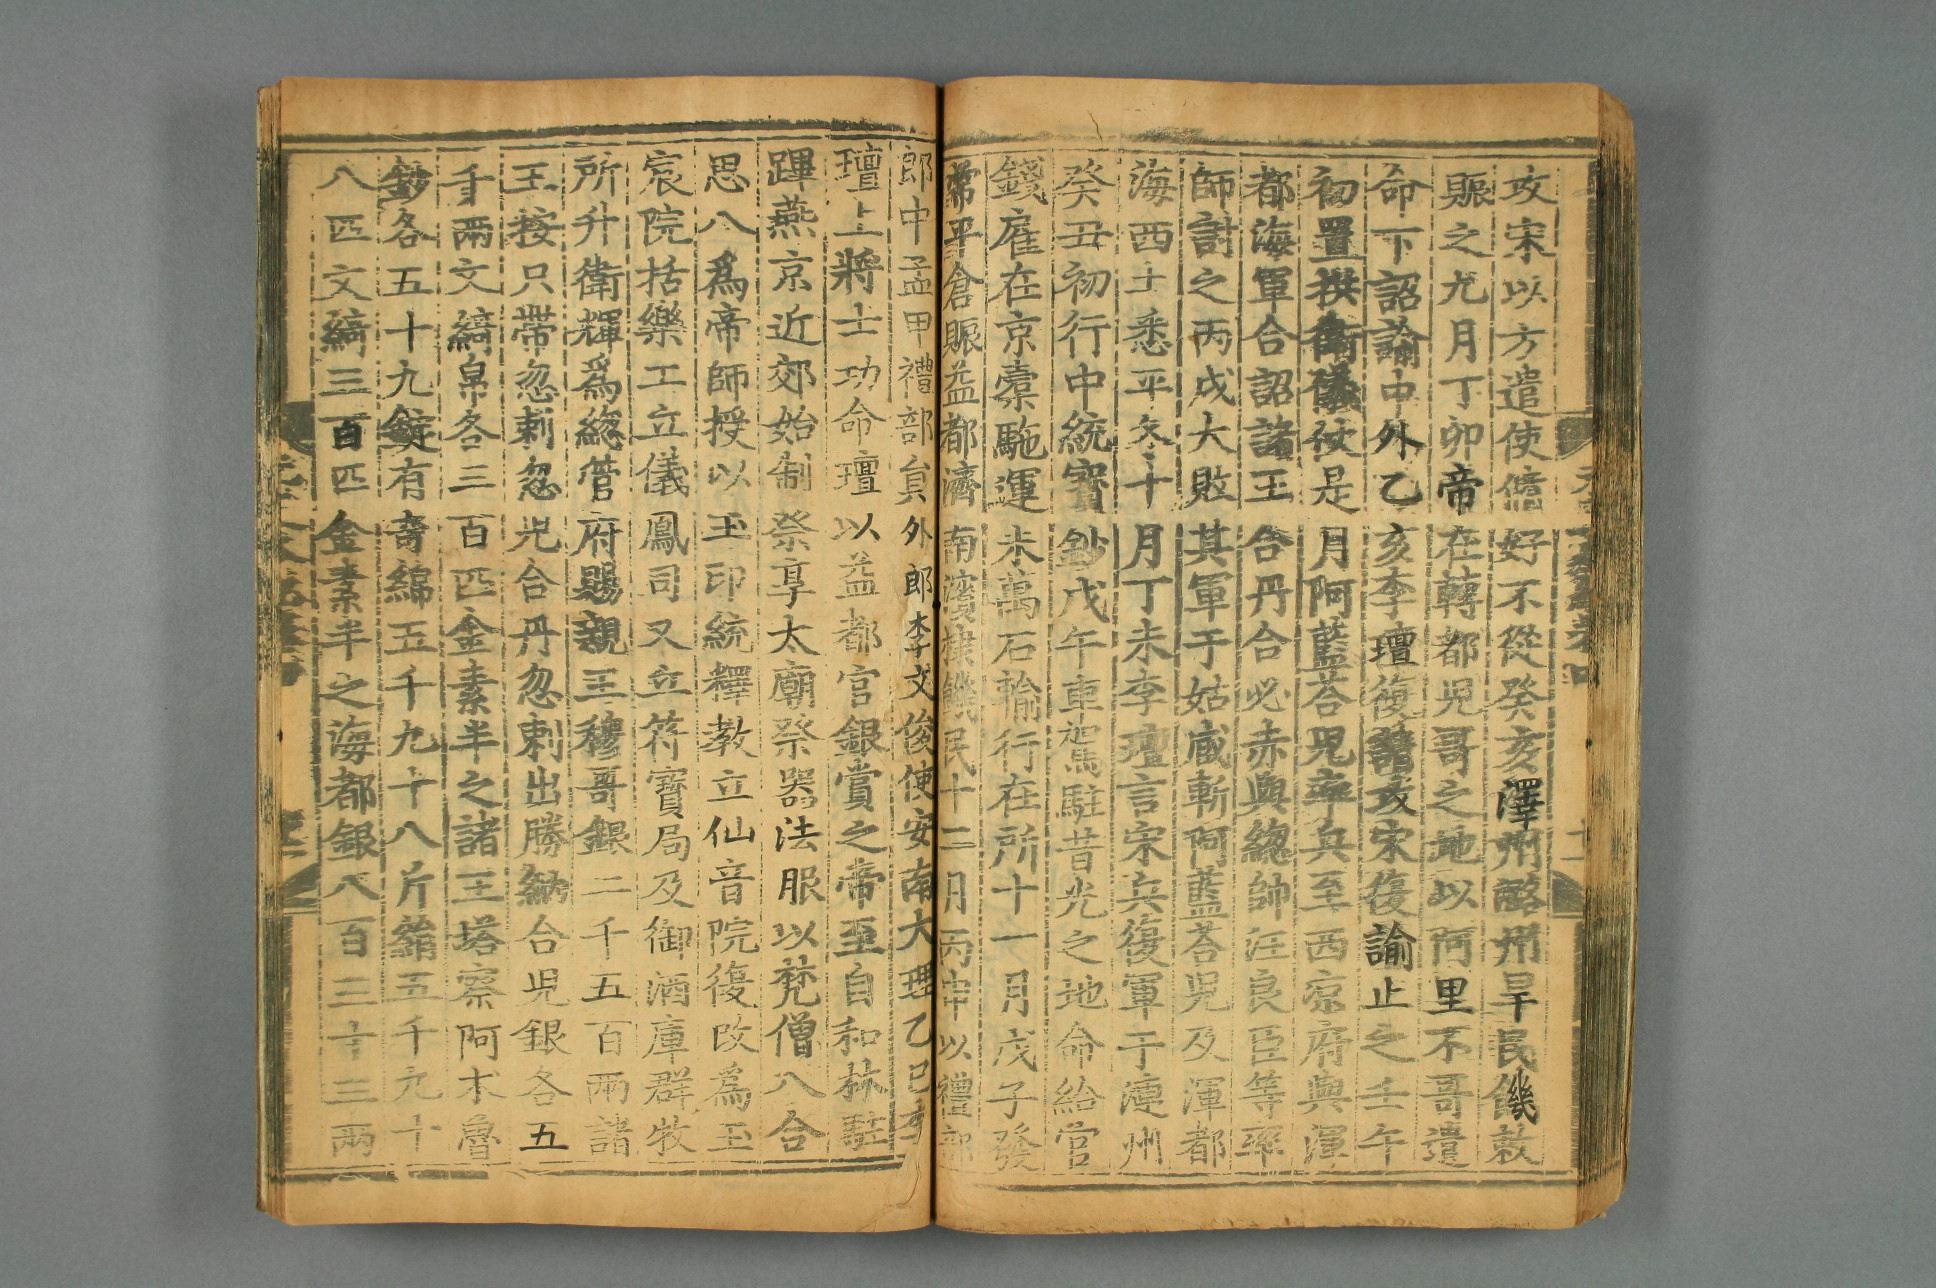 攻宋以方遣使脩好不從癸亥澤州潞州旱民饑敕
賑之九月丁卯帝在轉都兒哥之地以阿里不哥違
命下詔諭中外乙亥李璮復請攻宋復諭止之壬午
初置拱衛儀仗是月阿藍荅兒率兵至西涼府與渾
都海軍合詔諸王合丹合必赤與總帥汪良臣等率
師討之丙戌大敗其軍于姑臧斬阿藍荅兒及渾都
海西土悉平冬十月丁未李璮言宋兵復軍于漣州
癸丑初行中統寳鈔戊午車駕駐昔光之地命給官
錢雇在京橐駞運米萬石輸行在所十一月戊子發
常平倉賑益都濟南濱棣饑民十二月丙申以禮部
郎中孟甲禮部負外郎李文俊使安南大理乙巳李
璮上將士功命璮以益都官銀賞之帝至自和林駐
蹕燕京近郊始制祭享太廟祭器法服以梵僧八合
思八爲帝師授以玉印統釋教立仙音院復改爲玉
宸院括樂工立儀鳳司又立符寳局及御酒庫群牧
所升衛輝爲緫管府賜親王穆哥銀二千五百兩諸
王按只帶忽剌忽兒合丹忽剌出勝納合兒銀各五
千兩文綺帛各三百匹金素半之諸王塔察阿朮魯
鈔各五十九錠有奇綿五千九十八斤絹五千九十
八匹文綺三百匹金素半之海都銀八百三十三兩